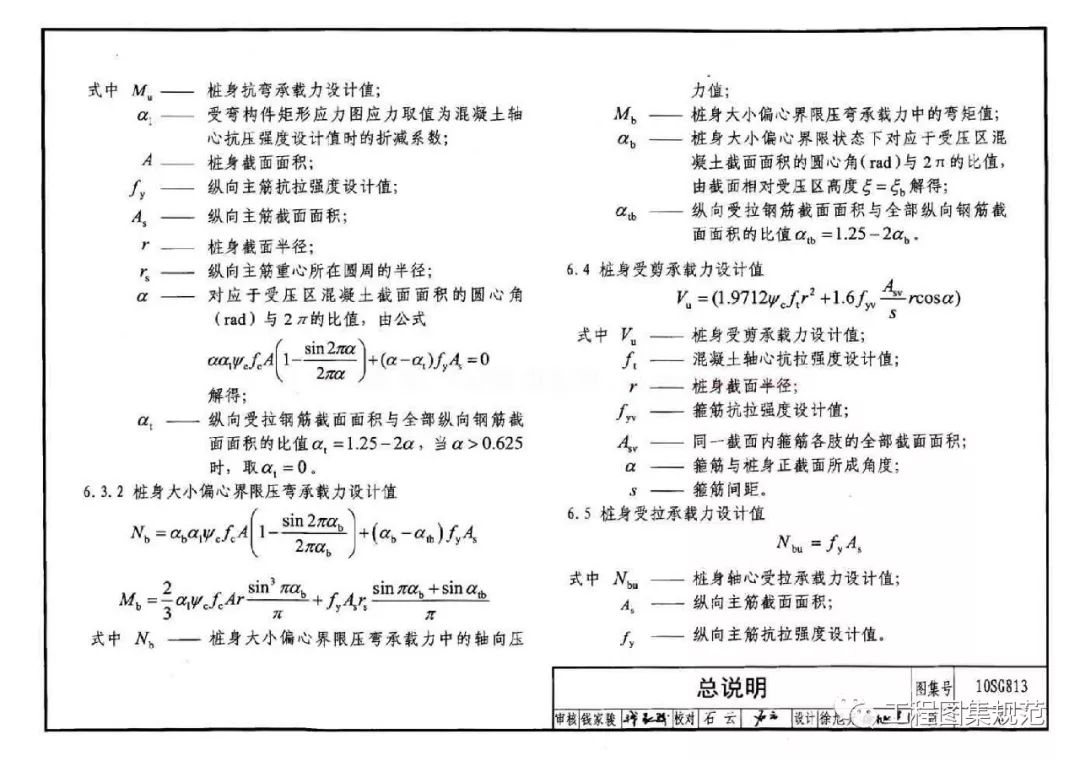 式中 Mu —— 桩身抗弯承载力设计值;
α1 —— 受弯构件矩形应力图应力取值为混凝土轴
心抗压强度设计值时的折减系数;
A —— 桩身截面面积;
fy —— 纵向主筋抗拉强度设计值;
As —— 纵向主筋截面面积;
r —— 桩身截面半径;
rs —— 纵向主筋重心所在圆周的半径;
α —— 对应于受压区混凝土截面面积的圆心角
(rad)与2π的比值，由公式
αα1ψcfcA(1-sin2πα/2πα)+(α-αt)fyAs=0
解得;
αt —— 纵向受拉钢筋截面面积与全部纵向钢筋截
面面积的比值αt=1.25-2α，当α>0.625
时，取αt=0。
6.3.2 桩身大小偏心界限压弯承载力设计值
Nb=αbα1ψcfcA(1-sin2παb/2παb)+(αb-αtb)fyAs
Mb=2/3α1ψcfcAr sin³παb/π+fyAsrs sinπαb+sinαtb/π
式中 Nb —— 桩身大小偏心界限压弯承载力中的轴向压
力值;
Mb —— 桩身大小偏心界限压弯承载力中的弯矩值;
αb —— 桩身大小偏心界限状态下对应于受压区混
凝土截面面积的圆心角(rad)与2π的比值，
由截面相对受压区高度ξ=ξb解得;
αtb —— 纵向受拉钢筋截面面积与全部纵向钢筋截
面面积的比值αtb=1.25-2αb。
6.4 桩身受剪承载力设计值
Vu=(1.9712ψcftr²+1.6fyv Asv/s rcosα)
式中 Vu —— 桩身受剪承载力设计值;
ft —— 混凝土轴心抗拉强度设计值;
r —— 桩身截面半径;
fyv —— 箍筋抗拉强度设计值;
Asv —— 同一截面内箍筋各肢的全部截面面积;
α —— 箍筋与桩身正截面所成角度;
s —— 箍筋间距。
6.5 桩身受拉承载力设计值
Nbu = fyAs
式中 Nbu —— 桩身轴心受拉承载力设计值;
As —— 纵向主筋截面面积;
fy —— 纵向主筋抗拉强度设计值。
总说明 图集号 10SG813
审核 钱家骏 校对 石云 设计 徐
工程图集规范